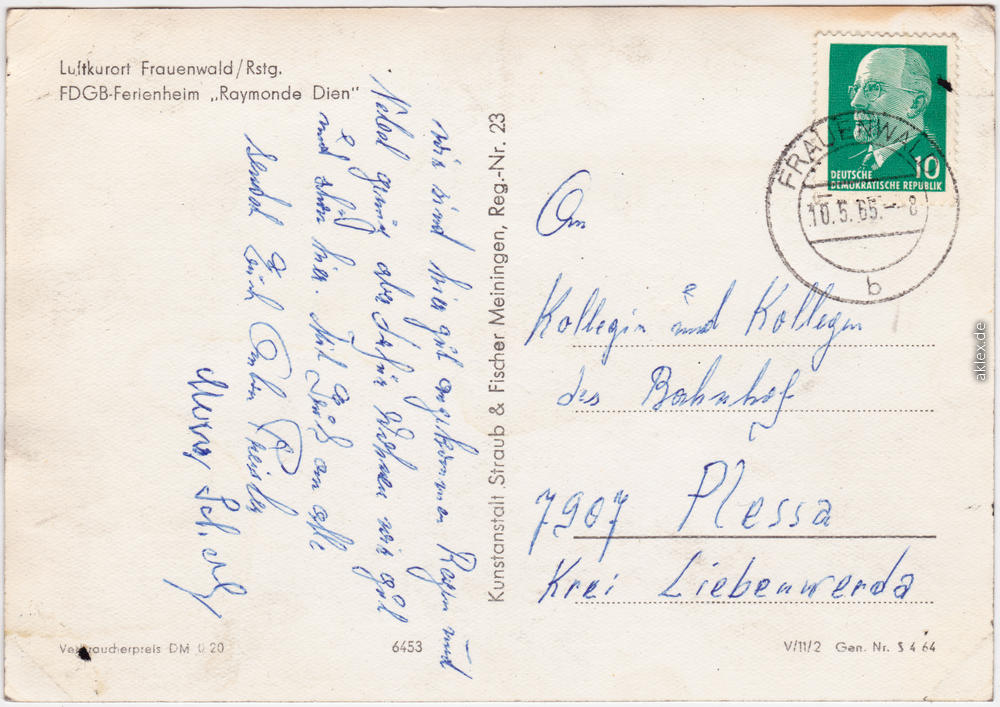 Luftkurort Frauenwald/Rstg.
FDGB-Ferienheim „Raymonde Dien"
wir sind hier gut angekommen Regen und
Nebel genug aber dafür Wohnen wir gut
und schön hier. Mit Gruß an alle
sendet Euch
Kunstanstalt Straub & Fischer Meiningen, Reg.-Nr. 23
DEUTSCHE
DEMOKRATISCHE REPUBLIK
10
FRAUENWALD
10.5.65.--8
b
An
Kollegin und Kollegen
des Bahnhof
7907 Plessa
Krei Liebenwerda
Verbraucherpreis DM 0 20
6453
V/11/2 Gen. Nr. S 4 64
aklex.de